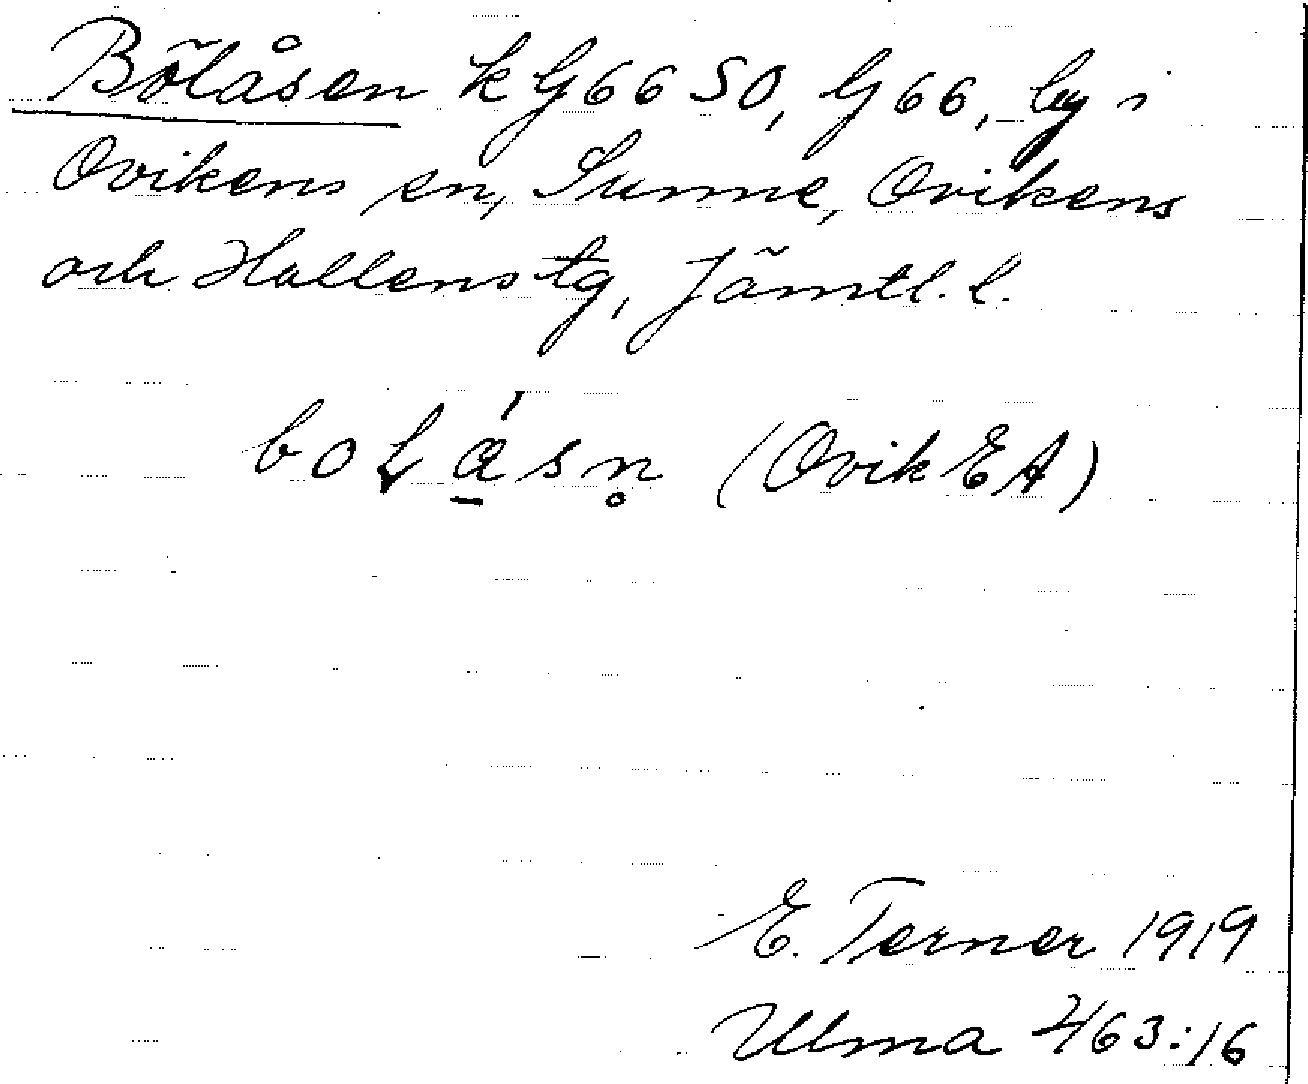 Bölåsen k G66 SO, G66, by i
Ovikens sn, Sunne, Ovikens
och Hallens tg, Jämtl. l.
boł<u>á</u>sn̥ (Ovik EA)
E. Terner 1919
Ulma 463:16